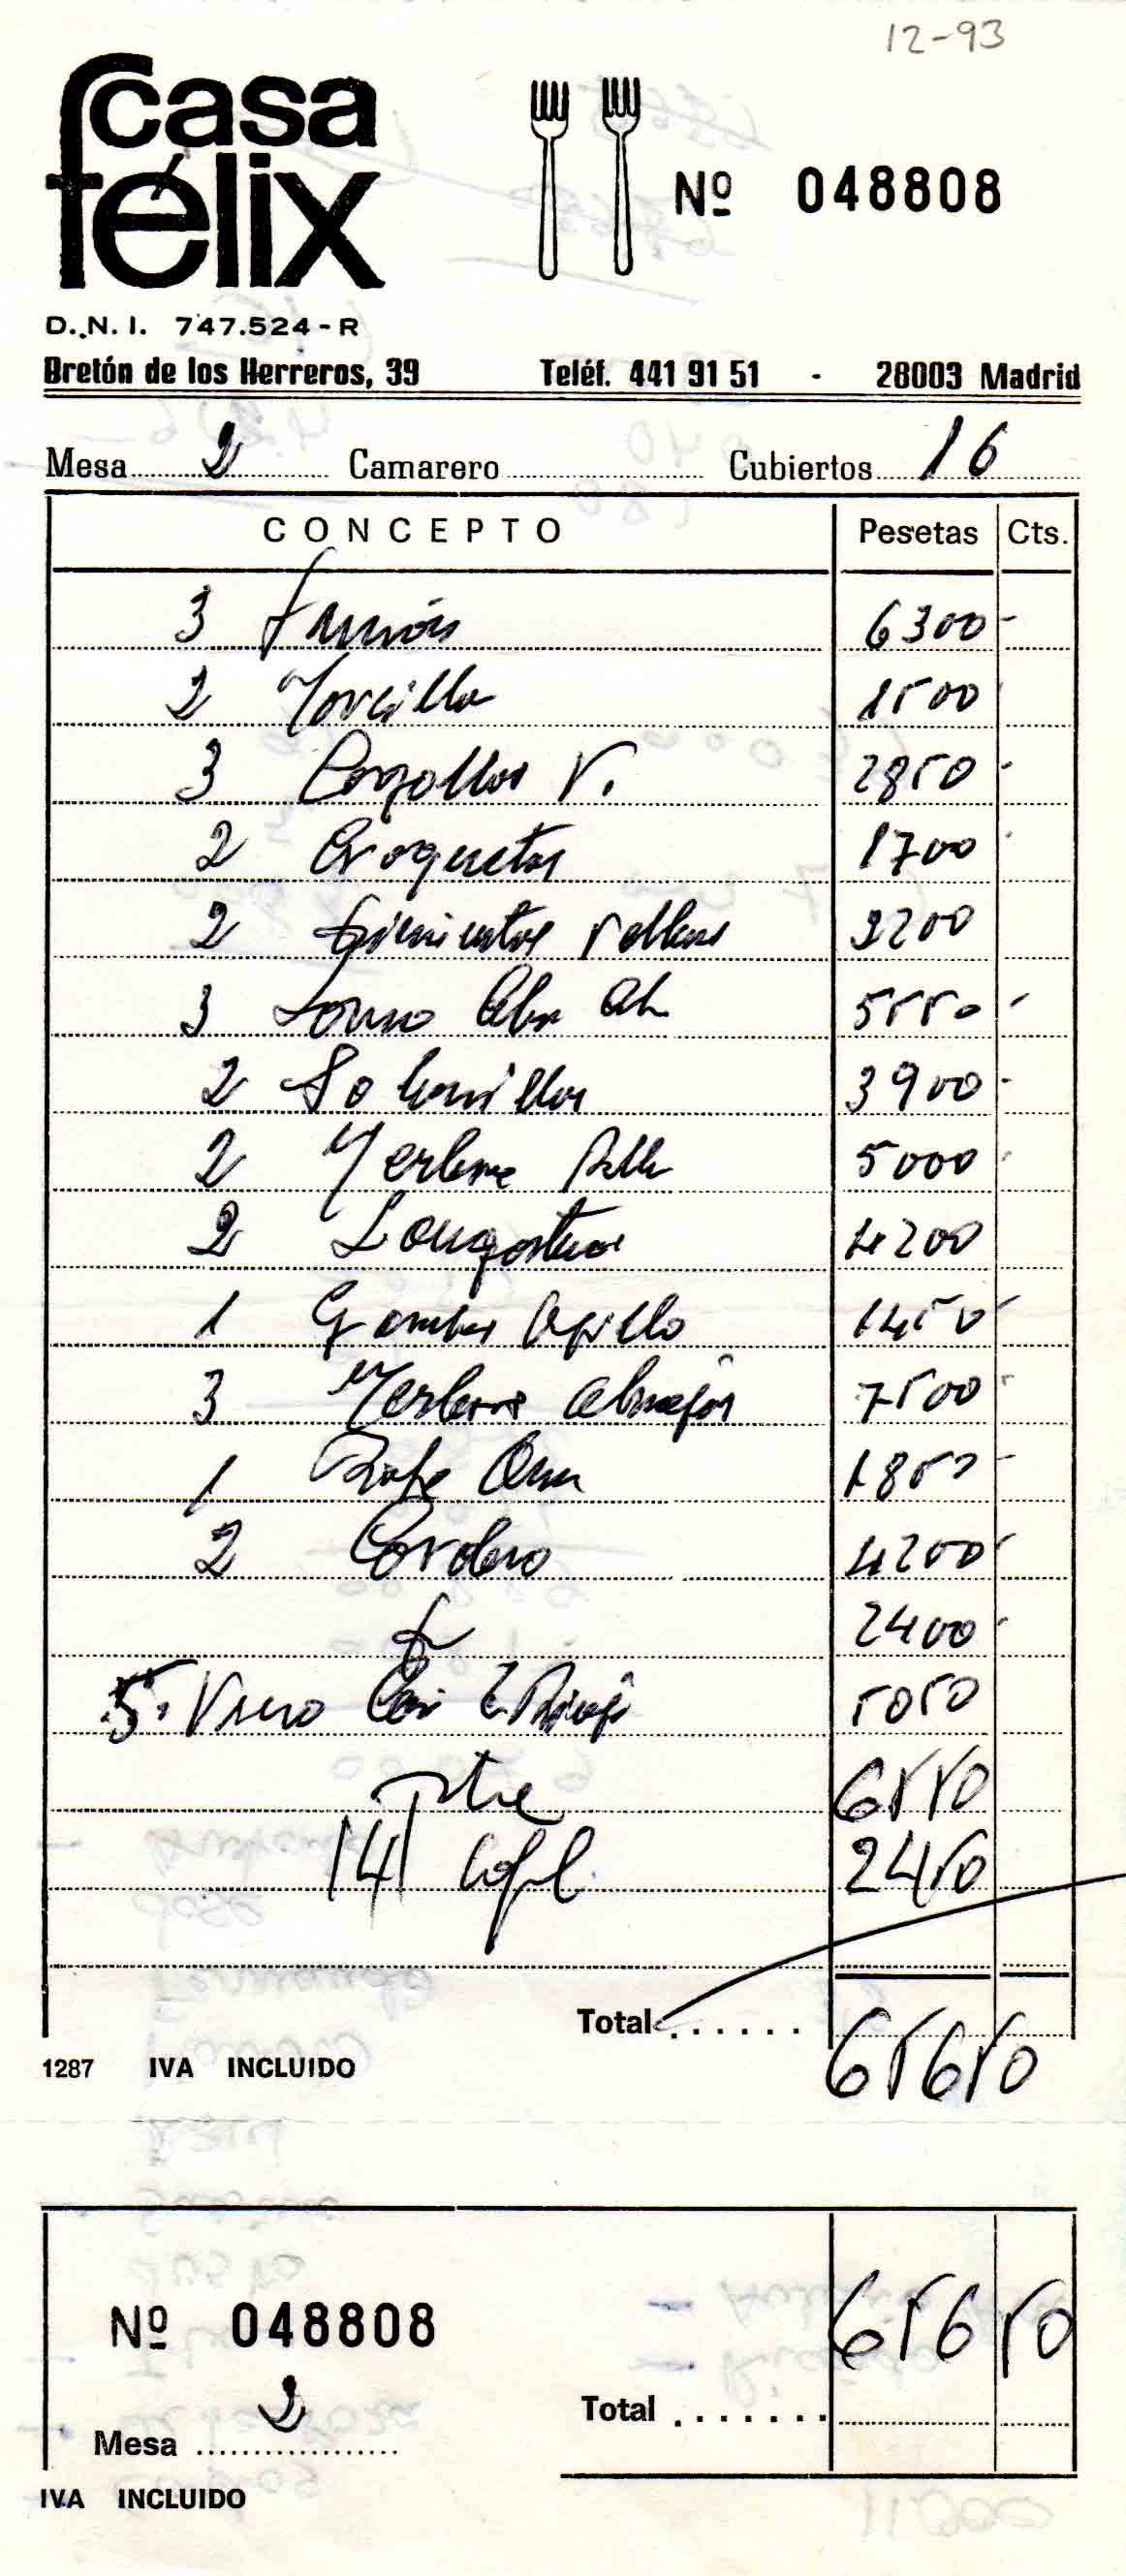 12-93
casa
félix
Nº 048808
D.N.I. 747.524-R
Bretón de los Herreros, 39 Teléf. 441 91 51 - 28003 Madrid
Mesa 2 Camarero Cubiertos 16
CONCEPTO Pesetas Cts.
3 Jamón 6300-
2 Morcilla 1500
3 Cogollos V. 2850-
2 Croquetas 1700
2 Pimientos rellenos 2200
3 Lomo 5550-
2 Solomillos 3900-
2 Merluza 5000
2 Langostinos 4200
1 Gambas Ajillo 1450
3 Merluza almejas 7500
1 Rape 1850-
2 Cordero 4200
2400
5. Vino 5050
6550
14 Café 2450
Total 65650
1287 IVA INCLUIDO
Nº 048808 65650
Total
Mesa 2
IVA INCLUIDO